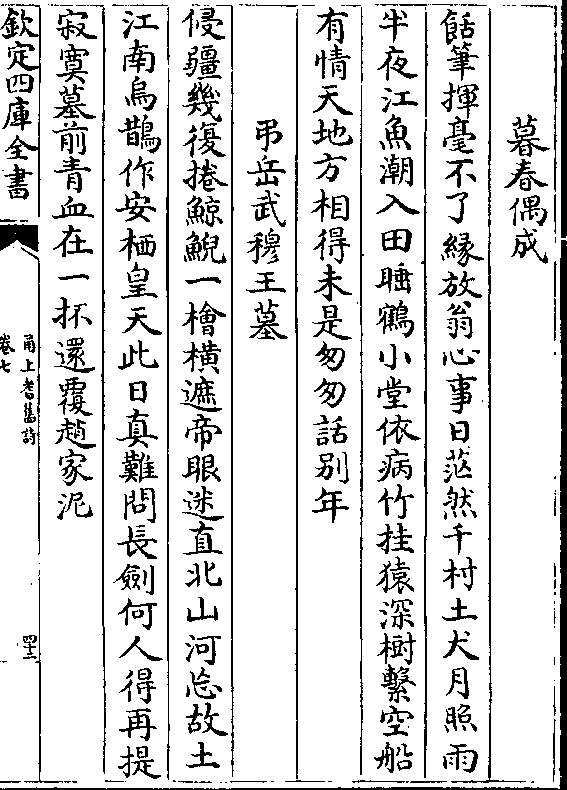 暮春偶成
餂筆揮毫不了縁放翁心事日茫然千村土犬月照雨
半夜江魚潮入田睡鶴小堂依病竹挂猿深樹繫空船
有情天地方相得未是匆匆話别年
弔岳武穆王墓
侵疆幾復捲鯨鯢一檜橫遮帝眼迷直北山河忘故土
江南烏鵲作安栖皇天此日真難問長劒何人得再提
寂寞墓前青血在一抔還覆趙家泥
欽定四庫全書
甬上耆舊詩
卷七
四十三